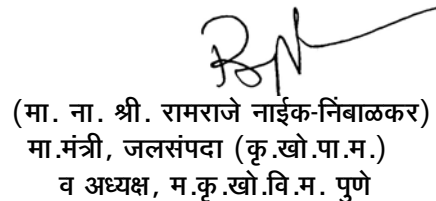 (मा. ना. श्री. रामराजे नाईक-निंबाळकर)
मा.मंत्री, जलसंपदा (कृ.खो.पा.म.)
व अध्यक्ष, म.कृ.खो.वि.म. पुणे